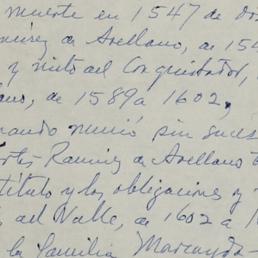 muerte en 1547 de do
mirez de Arellano, de 154
y nieto del Conquistador,
ano, de 1589 a 1602,
ando murió sin suces
ortés Ramirez de Arellano
título y las obligaciones y
del Valle, de 1602 a 1
la familia